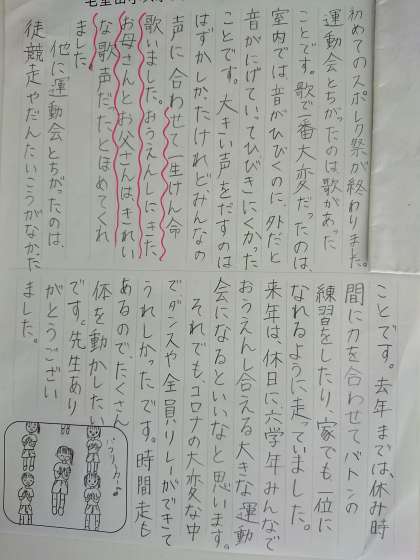 初めてのスポレク祭が終わりました。
運動会とちがったのは歌があった
ことです。歌で一番大変だったのは、
室内では音がひびくのに、外だと
音がにげていってひびきにくかった
ことです。大きい声をだすのは
はずかしかたけれど、みんなの
声に合わせて一生けん命
歌いました。おうえんしにきた
お母さんとお父さんは、きれい
な歌声だったとほめてくれ
ました。
他に運動会とちがったのは、
徒競走やだんたいこうがなかた
ことです。去年までは、休み時
間に力を合わせてバトンの
練習をしたり、家でも、一位に
なれるように走っていました。
来年は、休日に六学年みんなで
おうえんし合える大きな運動
会になるといいなと思います。
それでも、コロナの大変な中
でダンスや全員リレーができて
うれしかったです。時間走も
あるので、たくさん
体を動かしたい
です。先生あり
がとうござい
ました。